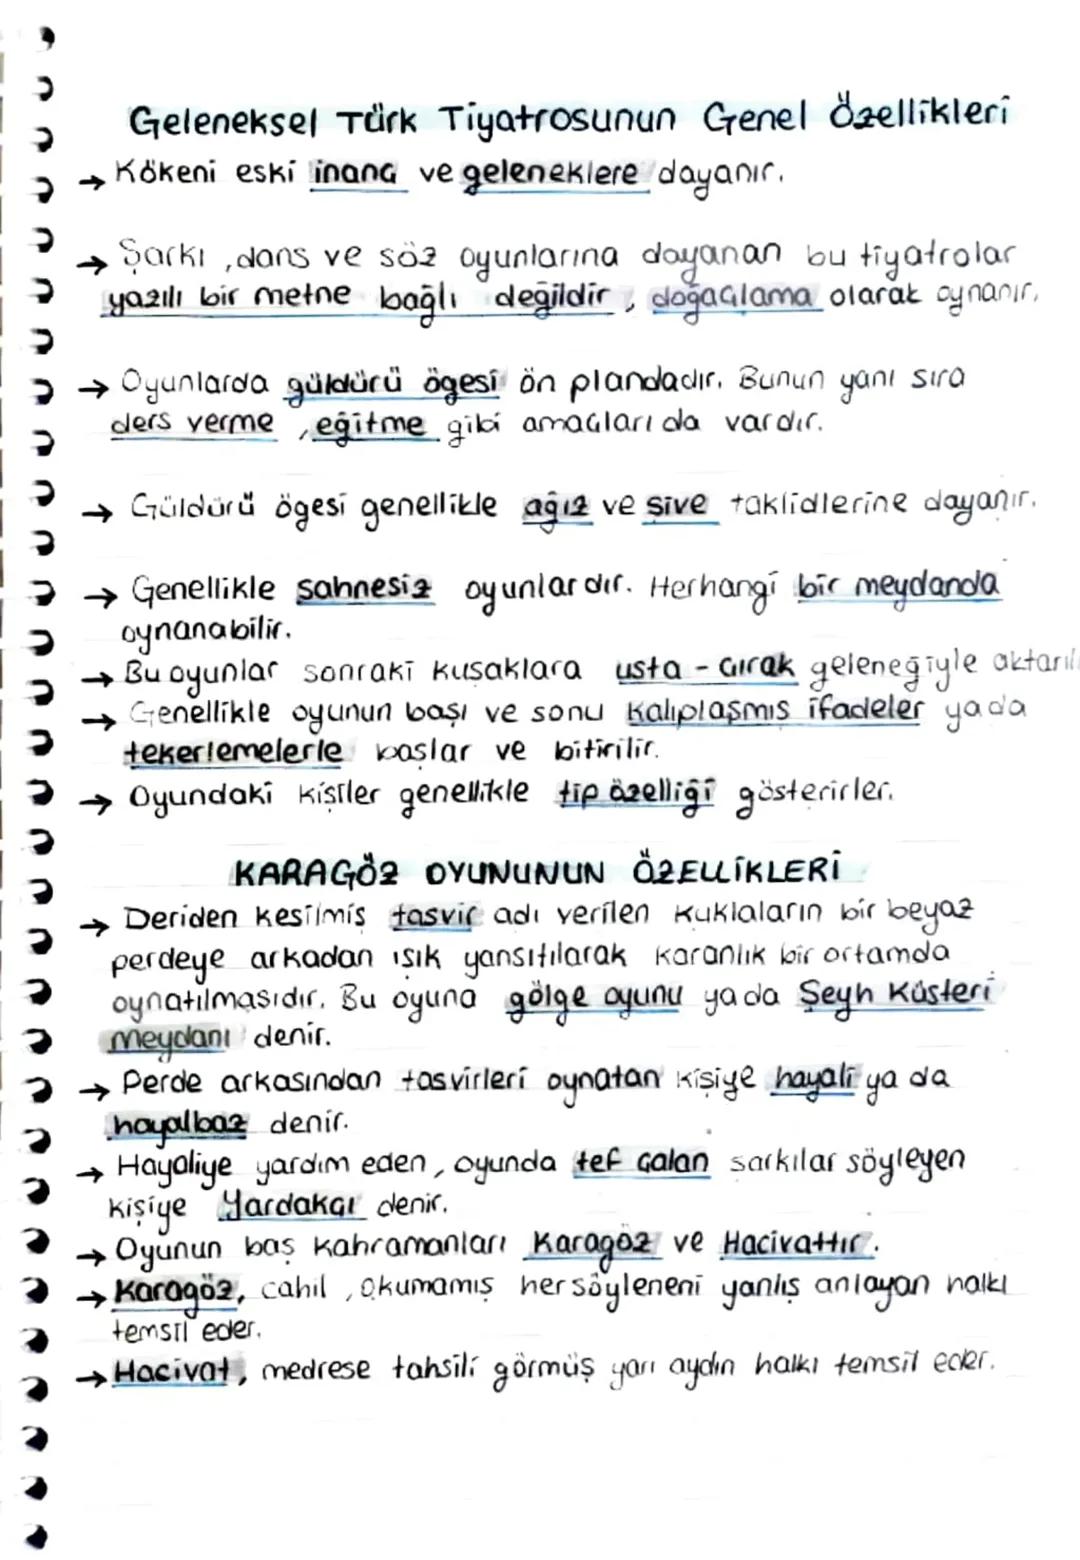 Geleneksel Türk Tiyatrosunun Genel Özellikleri
→ Kökeni eski inanç ve geleneklere dayanır.
→ Şarkı, dans ve söz oyunlarına dayanan bu tiyatrolar
yazılı bir metne bağlı değildir, doğaçlama olarak oynanır.
→ Oyunlarda güldürü ögesi ön plandadır. Bunun yanı sıra
ders verme, eğitme gibi amaçları da vardır.
→ Güldürü ögesi genellikle ağız ve şive taklidlerine dayanır.
→ Genellikle sahnesiz oyunlardır. Herhangi bir meydanda
oynanabilir.
→ Bu oyunlar sonraki kuşaklara usta - çırak geleneğiyle aktarılı
→ Genellikle oyunun başı ve sonu kalıplaşmış ifadeler ya da
tekerlemelerle başlar ve bitirilir.
→ Oyundaki kişiler genellikle tip özelliği gösterirler.
KARAGÖZ OYUNUNUN ÖZELLİKLERİ
→ Deriden kesilmiş tasvir adı verilen kuklaların bir beyaz
perdeye arkadan ışık yansıtılarak karanlık bir ortamda
oynatılmasıdır. Bu oyuna gölge oyunu ya da Şeyh Küşteri
Meydanı denir.
→ Perde arkasından tasvirleri oynatan kişiye hayali ya da
hayalbaz denir.
→ Hayaliye yardım eden, oyunda tef çalan şarkılar söyleyen
kişiye Yardakçı denir.
→ Oyunun baş kahramanları Karagöz ve Hacivattır.
→ Karagöz, cahil, okumamış her söyleneni yanlış anlayan halkı
temsil eder.
→ Hacivat, medrese tahsili görmüş yarı aydın halkı temsil eder.